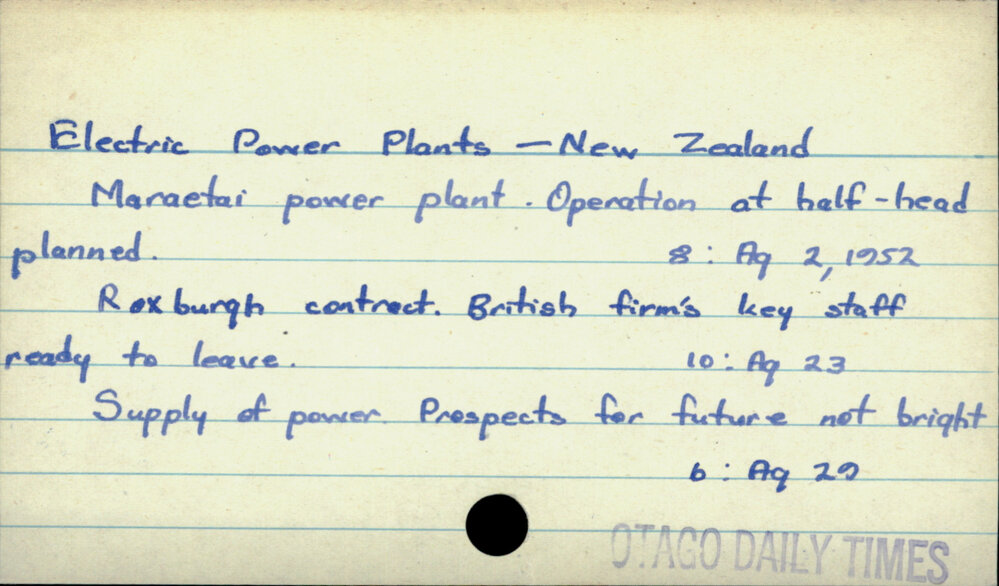 Electric Power Plants - New Zealand
Maraetai power plant. Operation at half-head
planned. 8 : Ag 2, 1952
Roxburgh contract. British firm's key staff
ready to leave. 10 : Ag 23
Supply of power. Prospects for future not bright
6 : Ag 29
OTAGO DAILY TIMES